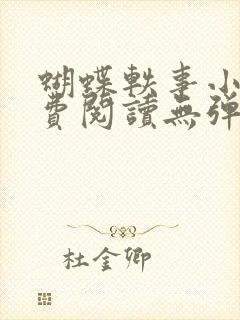 蝴蝶軼事小
費閱讀無彈
杜金卿